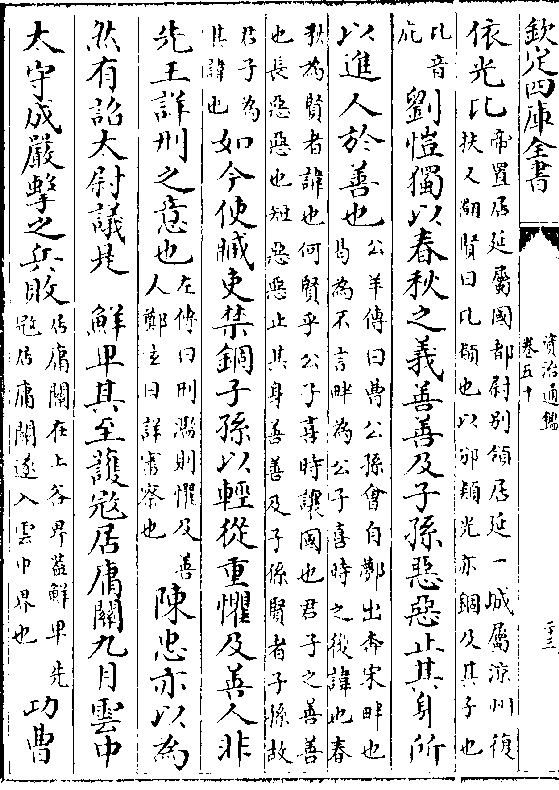 欽定四庫全書
資治通鑑
卷五十
三三
依光比帝置居延屬國都尉别領居延一城屬涼州復
扶又翻賢曰比類也以邠類光亦錮及其子也
比音
庇劉愷獨以春秋之義善善及子孫惡惡止其身所
以進人於善也公羊傳曰曹公孫會自鄸出奔宋畔也
曷為不言畔為公子喜時之後諱也春
秋為賢者諱也何賢乎公子喜時讓國也君子之善善
也長惡惡也短惡惡止其身善善及子孫賢者子孫故
君子為
其諱也如今使臧吏禁錮子孫以輕從重懼及善人非
先王詳刑之意也左傳曰刑濫則懼及善
人鄭玄曰詳審察也陳忠亦以為
然有詔太尉議是 鮮卑其至鞬寇居庸關九月雲中
太守成嚴擊之兵敗居庸關在上谷界葢鮮卑先
寇居庸關遂入雲中界也功曹